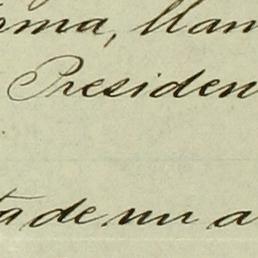 oma, llam
Presiden
ta de nu a